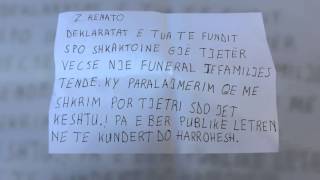 Z RENATO
DEKLARATAT E TUA TE FUNDIT
SPO SHKAKTOINE GJE TJETËR
VECSE NJE FUNERAL FFAMILJES
TENDE. KY PARALAJMERIM QE ME
SHKRIM POR TJETRI SDO JET
KESHTU.! PA E BER PUBLIKE LETREN
NE TE KUNDERT DO HARROHESH.